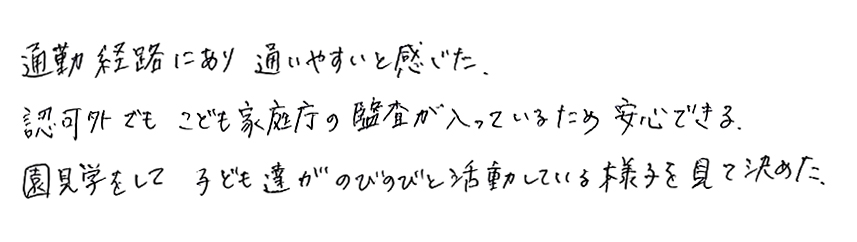 通勤経路にあり 通いやすいと感じた、
認可外でも こども家庭庁の監査が入っているため 安心できる.
園見学をして 子ども達がのびのびと活動している様子を見て決めた、